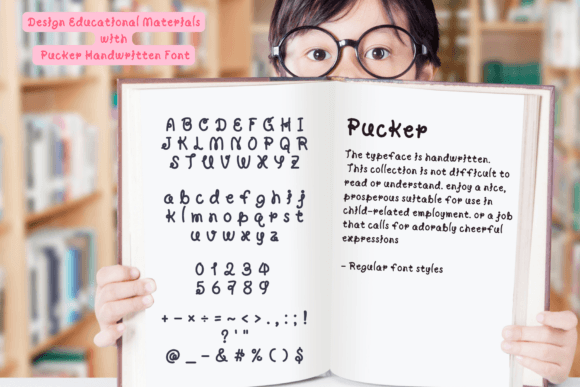 Design Educational Materials
with
Pucker Handwritten Font
A B C D E F G H I
J K L M N O P Q R
S T U V W X Y Z
a b c d e f g h i j
k l m n o p q r s t
u v w x y z
0 1 2 3 4
5 6 7 8 9
+ – × ÷ = ~ < > . , : ; !
? ' "
@ _ - & # % ( ) $
Pucker
The typeface is handwritten.
This collection is not difficult to
read or understand. enjoy a nice,
prosperous suitable for use in
child-related employment. or a job
that calls for adorably cheerful
expressions
- Regular font styles